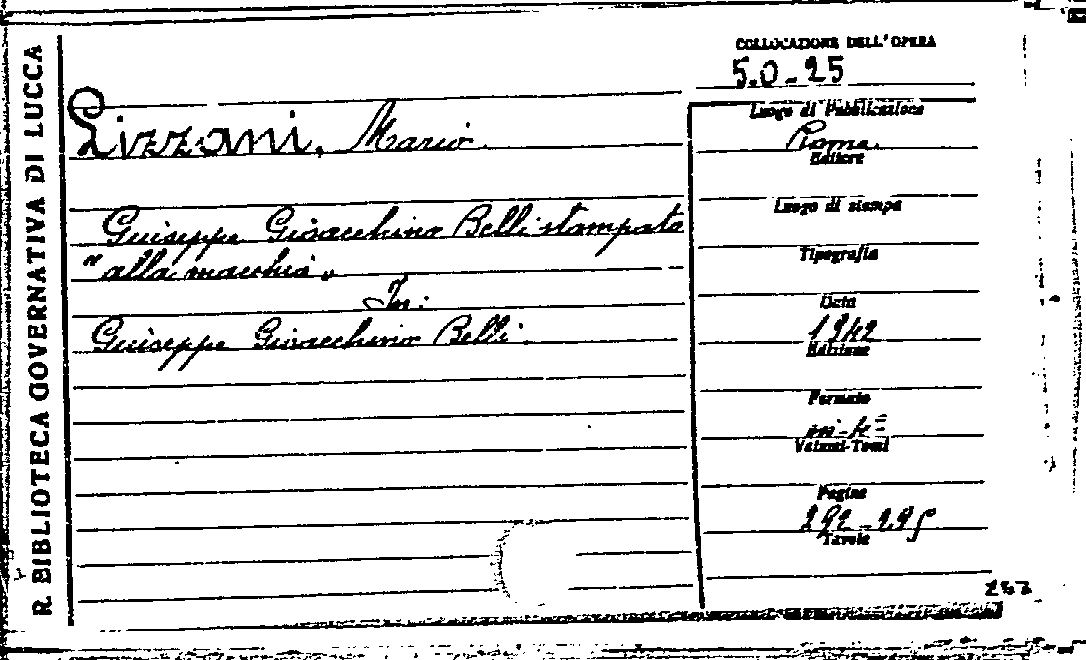 R. BIBLIOTECA GOVERNATIVA DI LUCCA
COLLOCAZIONE DELL'OPERA
5.0-25
Lizzani, Mario.
Guiseppe Gioacchino Belli stampato
"alla macchia"
In:
Guiseppe Gioacchino Belli.
Luogo di Pubblicazione
Roma.
Editore
Luogo di stampa
Tipografia
Data
1942
Edizione
Formato
in-4º
Volumi-Tomi
Pagine
292-295
Tavole